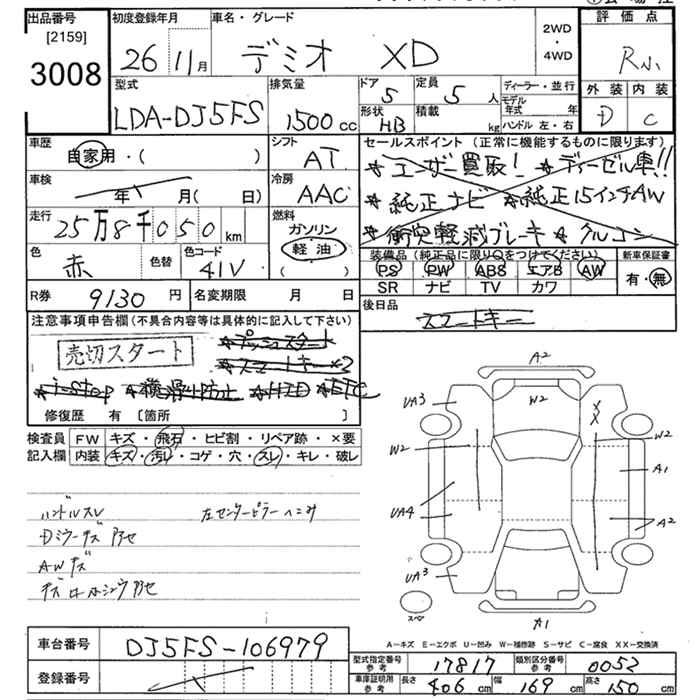 出品番号 初度登録年月 車名・グレード 2WD・4WD 評価点
[2159]
3008 26 11月 デミオ XD R小
型式 排気量 ドア 定員 ディーラー・並行 外装 内装
LDA-DJ5FS 1500cc 5 5人 モデル年式 年 D C
形状 HB 積載 kg ハンドル 左・右
車歴 シフト セールスポイント (正常に機能するものに限ります)
自家用・( ) AT ★ユーザー買取! ★ディーゼル車!!
車検 冷房 ★純正ナビ ★純正15インチAW
年 月( 日) AAC ★衝突軽減ブレーキ ★クルコン
走行 燃料
25万8千050km ガソリン 装備品(純正品に限り○をつけてください) 新車保証書
色 色替 色コード 軽油 PS PW ABS エアB AW 有・無
赤 41V ( ) SR ナビ TV カワ
R券 9130円 名変期限 月 日 後日品
注意事項申告欄(不具合内容等は具体的に記入して下さい) スマートキー
売切スタート ★プッシュスタート
★スマートキー×2
★i-stop ★横滑り防止 ★HID ★ETC
修復歴 有 [箇所 ]
検査員 FW キズ・飛石・ヒビ割・リペア跡・×要
記入欄 内装 キズ・汚レ・コゲ・穴・スレ・キレ・破レ
ハンドルスレ 左センターピラーヘコミ
Dミラーキズ
AWキズ
A2
UA3 W2 XX
W2 W2
A1
UA4 A2
UA3
スペア A1
A=キズ E=エクボ U=凹み W=補修跡 S=サビ C=腐食 XX=交換済
車台番号 DJ5FS-106979 型式指定番号 参考 17817 類別区分番号 参考 0052
登録番号 車庫証明用 参考 長さ 406cm 幅 169cm 高さ 150cm